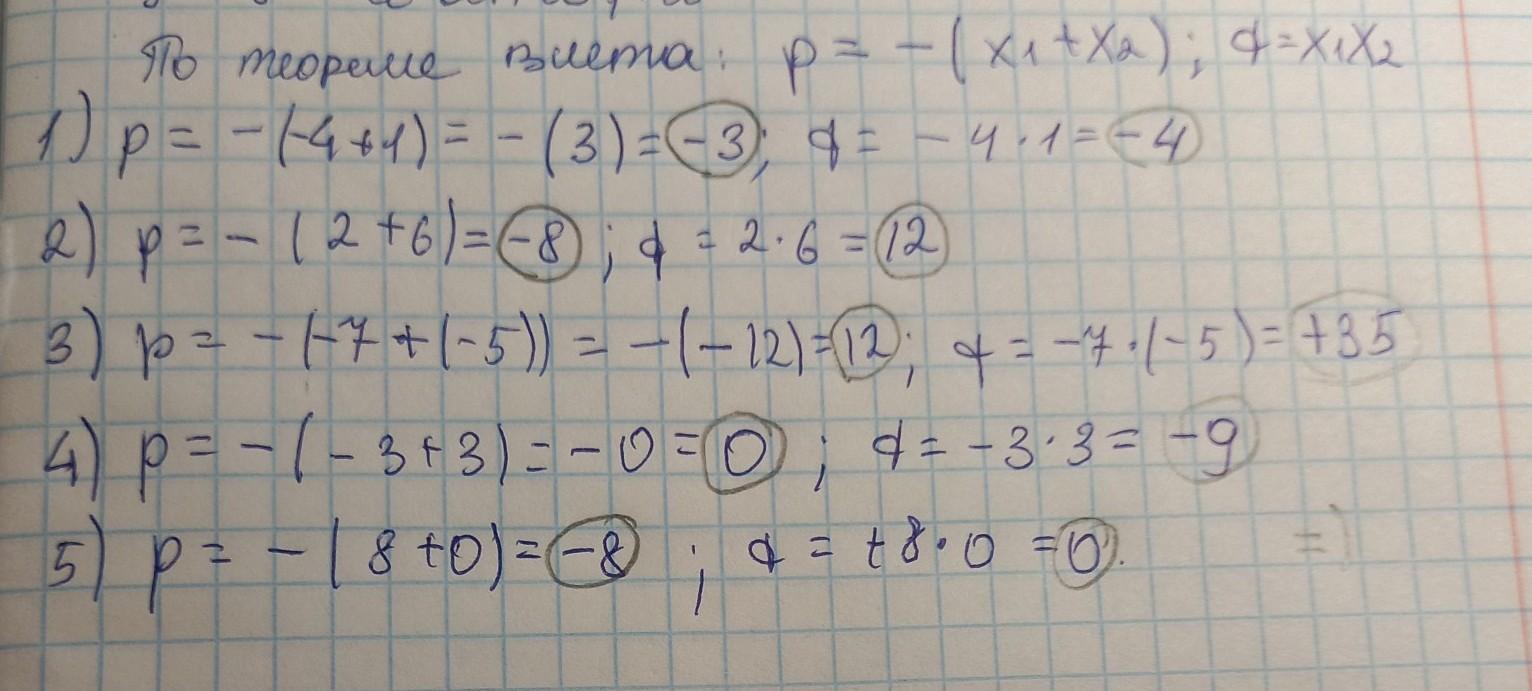 По теореме виета: p = - (x1 + x2); q = x1x2
1) p = - (-4+1) = - (3) = -3; q = - 4 · 1 = -4
2) p = - (2 + 6) = -8; q = 2 · 6 = 12
3) p = - (-7 + (-5)) = - (-12) = 12; q = -7 · (-5) = +35
4) p = - (- 3 + 3) = - 0 = 0; q = -3 · 3 = -9
5) p = - (8 + 0) = -8; q = +8 · 0 = 0.